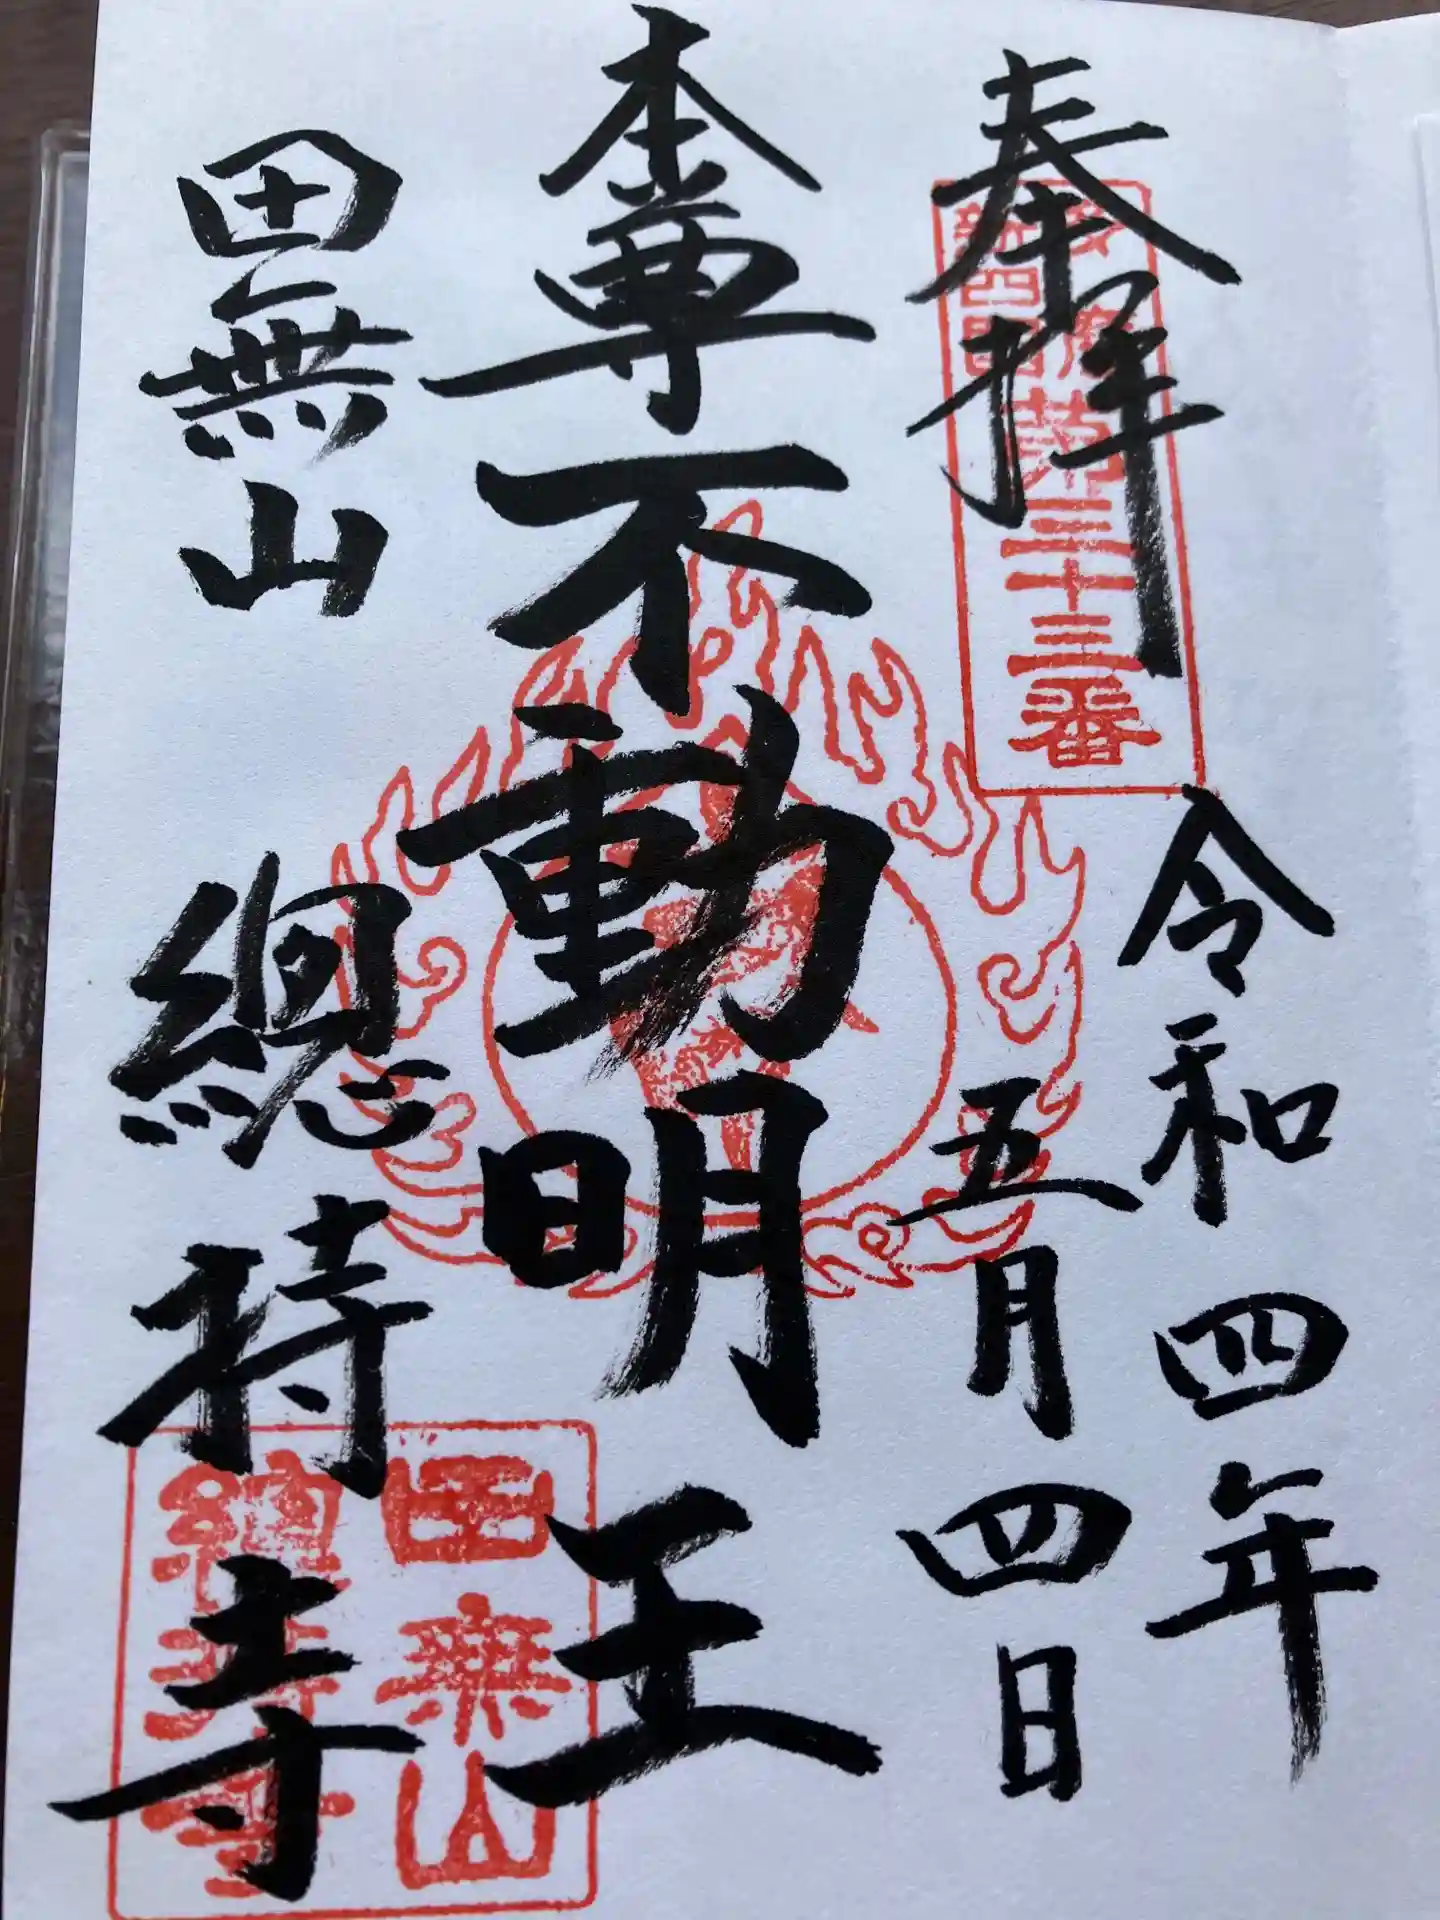 奉拝
多摩
新四国
第三十三番
令和四年
五月四日
本尊不動明王
田無山
總持寺
田無山
總持寺